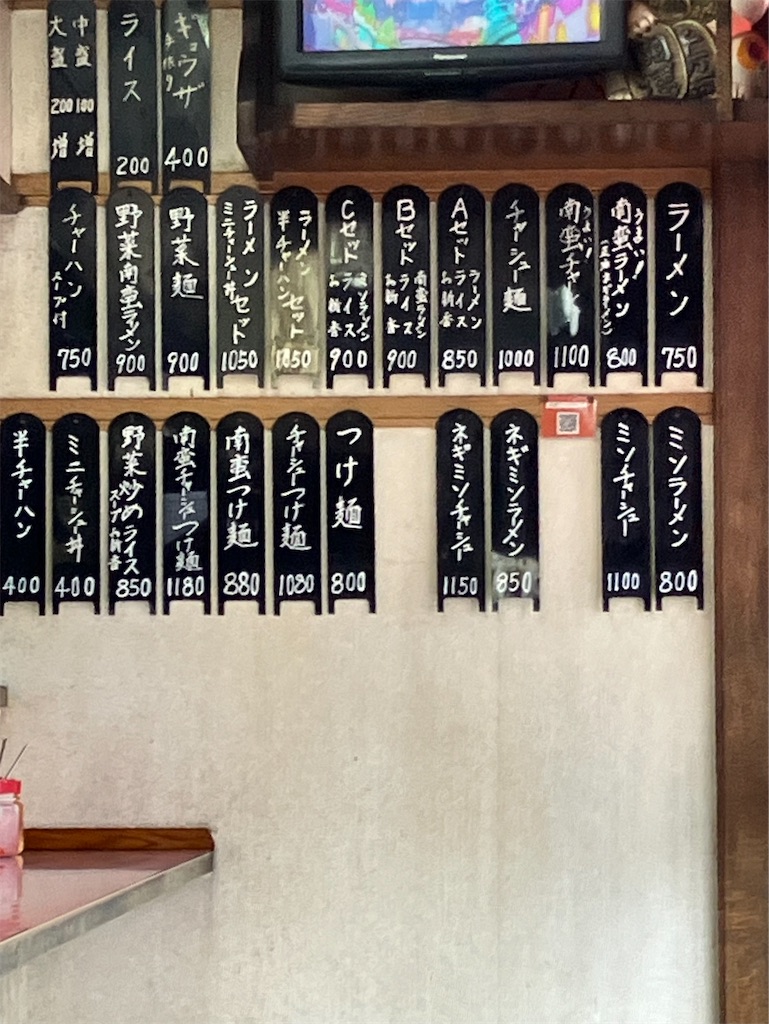 ギョウザ
手作り
400
ライス
200
中盛 100増
大盛 200増
ラーメン
750
うまい!
南蛮ラーメン
800
うまい!
南蛮チャーシュー
1100
チャーシュー麺
1000
Aセット
ラーメン
ライス
お新香
850
Bセット
南蛮ラーメン
ライス
お新香
900
Cセット
ミソラーメン
ライス
お新香
900
ラーメン
半チャーハン
セット
1050
ラーメン
ミニチャーシュー丼
セット
1050
野菜麺
900
野菜南蛮ラーメン
900
チャーハン
スープ付
750
ミソラーメン
800
ミソチャーシュー
1100
ネギミソラーメン
850
ネギミソチャーシュー
1150
つけ麺
800
チャーシューつけ麺
1080
南蛮つけ麺
880
南蛮チャーシューつけ麺
1180
野菜炒めライス
スープお新香
850
ミニチャーシュー丼
400
半チャーハン
400
Panasonic